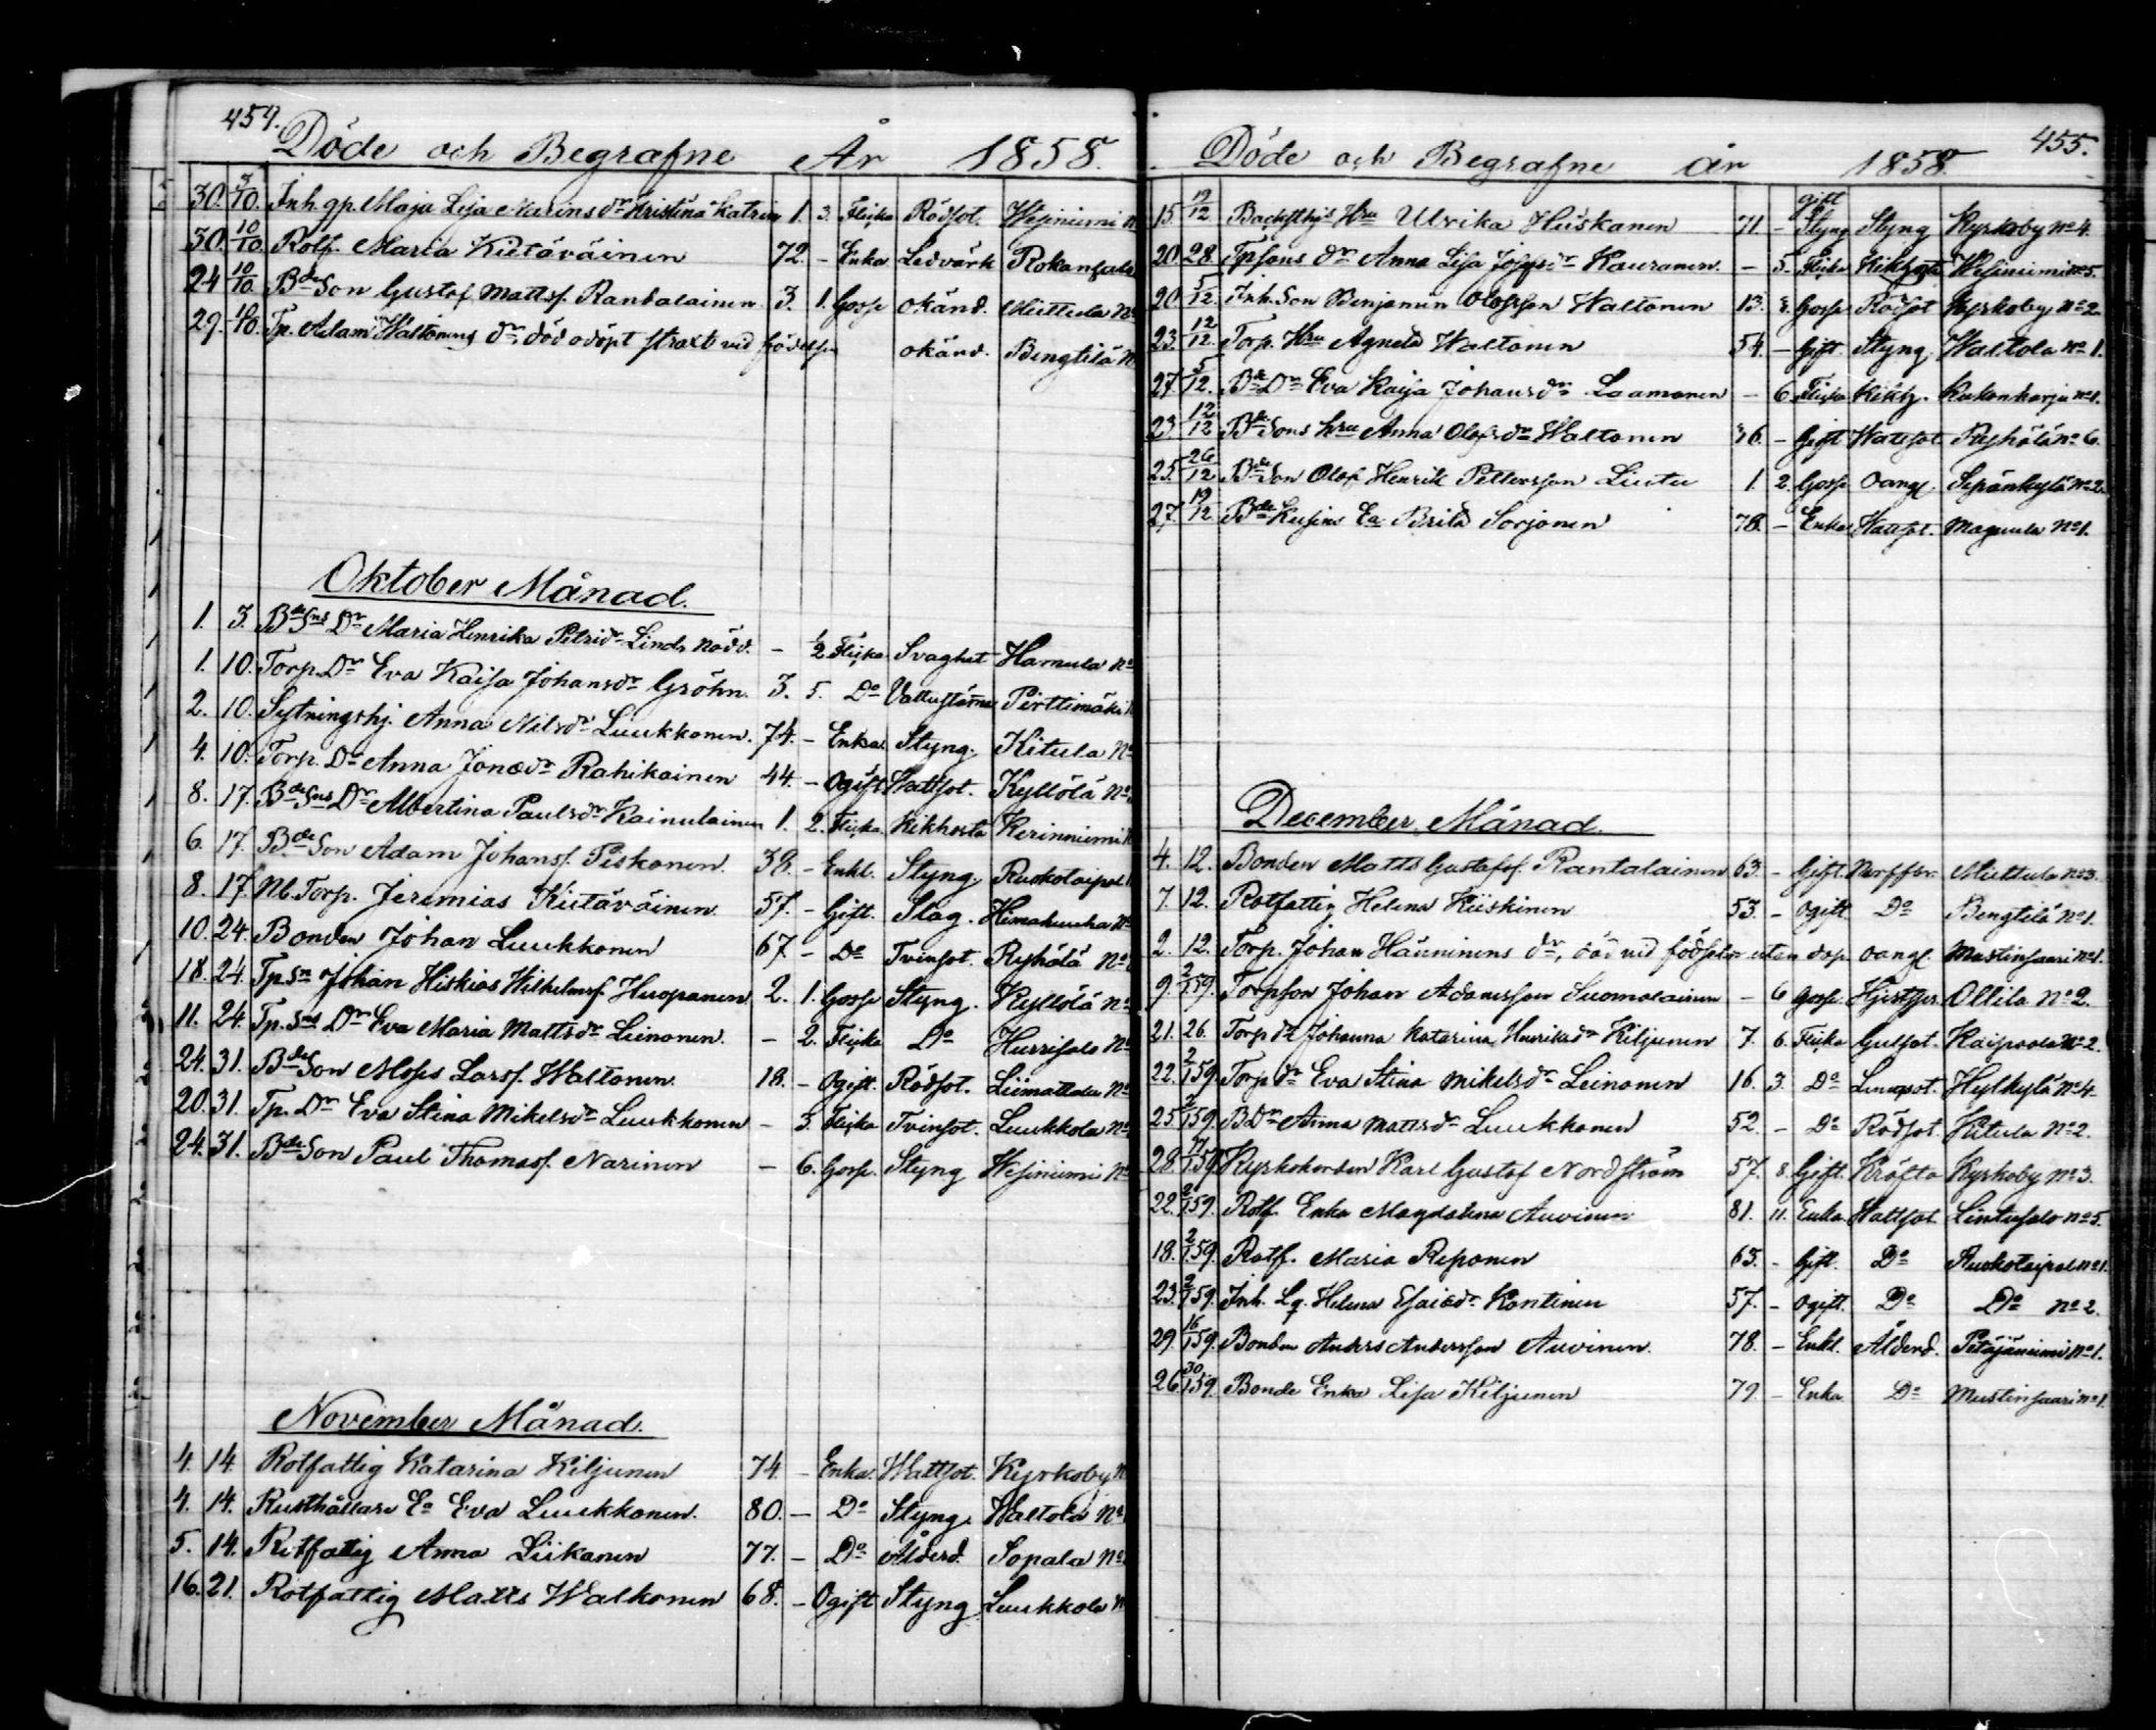 454.
Döde och Begrafne År 1858.
30. 3/10. Inh. gp. Maja Lisa Narins dr Kristina Katrin 1. 3. Flicka Rödsot. Wesiniemi N
30. 10/10 Rotf. Maria Kietäväinen 72. - Enka Ledvärk Rokansalo
24 10/10. Bde Son Gustaf Mattsf. Rantalainen 3. 1. Gosse okänd. Miettula No
29. 10/10. Tp. Adam Waltonens dr död odöpt straxt vid födelsen okänd. Bengtilä N
Oktober Månad.
1. 3. Bde Sns Dr Maria Henrika Petridr Lindr nödd. - 1/2 Flicka Svaghet Hamula No
1. 10. Torp. Dr Eva Kaisa Johansdr Gröhn. 3. 5. Do Pirttimäki
2. 10. Sytningshj. Anna Nilsdr Luukkonen. 74. - Enka Styng. Kitula No
4. 10. Torp. Dr Anna Jonædr Rahikainen 44. - Ogift Wattsot. Kyllölä No
8. 17. Bde Sns Dr Albertina Paulsdr Kainulainen 1. 2. Flicka Kikhosta Kerinniemi
6. 17. Bde Son Adam Johansf. Piskonen. 38. - Enkl. Styng Ruokolaipal
8. 17. Nb. Torp. Jeremias Kietäväinen. 57. - Gift. Slag. Himahuuha No
10. 24. Bonden Johan Luukkonen 67 - Do Tvinsot. Ryhälä No
18. 24. Tp. Sn Johan Hiskias Wilhelmsf. Huopanen 2. 1. Gosse Styng. Kyllölä No
11. 24. Tp. Sns Dr Eva Maria Mattsdr Leinonen. - 2. Flicka Do Hurrisalo No
24. 31. Bde Son Moses Larsf. Waltonen. 18. - Ogift. Rödsot. Liimattala No
20. 31. Tp. Dr Eva Stina Mikelsdr Luukkonen - 3. Flicka Tvinsot. Luukkola No
24. 31. Bde Son Paul Thomasf. Narinen - 6. Gosse. Styng Wesiniemi No
November Månad.
4. 14. Rotfattig Katarina Kiljunen 74. - Enka. Wattsot. Kyrkoby N
4. 14. Rusthållare Ea Eva Luukkonen. 80. - Do Styng. Waltola No
5. 14. Rotfattig Anna Liikanen 77. - Do Ålderd. Sopala No
16. 21. Rotfattig Matts Walkonen 68. - Ogift Styng Luukkola N
455.
Döde och Begrafne år 1858.
15 19/12. Hru Ulrika Huiskanen 71. - gift Styng Styng Kyrkoby No 4.
20. 28. Tpsons dr Anna Lisa Josefsdr Kauranen. - 5. Flicka Kikhosta Wesiniemi No 5.
20. 5/12. Inh. Son Benjamin Olofsson Waltonen 13. 8. Gosse Rödsot Kyrkoby No 2.
23. 12/12. Torp. Hru Agneta Waltonen 54. - Gift. Styng. Waltola No 1.
27. 5/12. Bde Dr Eva Kaisa Johansdr Laamanen - 6. Flicka Kikh. Kukonharju No 1.
23. 12/12 Bde Sons hru Anna Olofsdr Waltonen 36. - Gift Wattsot Ryhälä No 6.
25. 26/12 Bde Son Olof Henrik Pettersson Lintu 1. 2. Gosse oang. Sepänkylä No 2.
27. 19/12 Bde Kusins Ea Brita Sorjonen 78. - Enka Wattsot. Maguula No 1.
December Månad.
4. 12. Bonden Matts Gustafsf. Rantalainen 63. - Gift. Nerffbr. Miettula No 3.
7. 12. Rotfattig Helena Kiiskinen 53. - Ogift Do Bengtilä No 1.
2. 12. Torp. Johan Hänninens dr, död vid födseln utan dop oang. Mustinsaari No 1.
9. 2/1 59. Torpson Johan Adamsson Suomalainen - 6 Gosse. Ollila No 2.
21. 26. Torp dr Johanna Katarina Henriksdr Kiljunen 7. 6. Flicka Gulsot. Kaipaala No 2.
22. 2/1 59. Torp dr Eva Stina Mikelsdr Leinonen 16. 3. Do Lungsot. Hylkylä No 4
25. 2/1 59. B Dr Anna Mattsdr Luukkonen 52. - Do Rödsot. Kitula No 2.
28. /1 59. Kyrkoherden Karl Gustaf Nordström 57. 8. Gift. Kräfta Kyrkoby No 3.
22. 2/1 59. Rotf. Enka Magdalena Auvinen 81. 11. Enka Wattsot Lintusalo No 5.
18. 2/1 59. Rotf. Maria Reponen 63. - Gift. Do Ruokolaipal No 1.
23. 2/1 59. Inh. Lg. Helena Esaiædr Kontinen 57. - Ogift. Do Do No 2.
29. 16/1 59. Bonden Anders Andersson Auvinen. 78. - Enkl. Ålderd. Petäjäniemi No 1.
26. 30/1 59. Bonde Enka Lisa Kiljunen 79. - Enka Do Mustinsaari No 1.